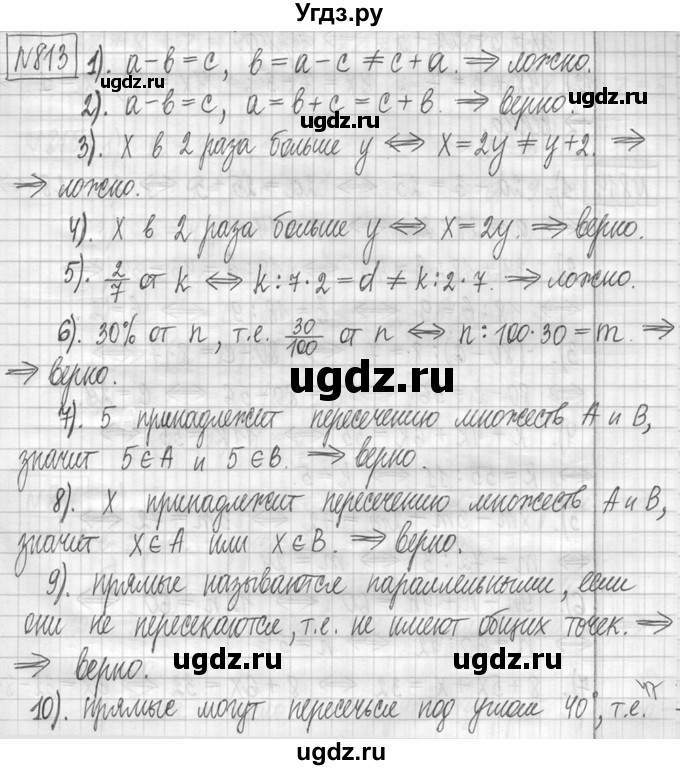 Угдз.ру
№813 1). a-b=c, b=a-c≠c+a. ⇒ ложно.
ugdz.ru ugdz.ru
2). a-b=c, a=b+c=c+b. ⇒ верно.
ugdz.ru
3). X в 2 раза больше y ⇔ X=2y≠y+2. ⇒
⇒ ложно.
4). X в 2 раза больше y ⇔ X=2y. ⇒ верно.
5). 2/7 от k ⇔ k:7·2=d≠k:2·7. ⇒ ложно.
6). 30% от n, т.е. 30/100 от n ⇔ n:100·30=m. ⇒
⇒ верно.
ugdz.ru
7). 5 принадлежит пересечению множеств A и B,
значит 5∈A и 5∈B. ⇒ верно.
ugdz.ru
8). X принадлежит пересечению множеств A и B,
значит X∈A или X∈B. ⇒ верно.
9). прямые называются параллельными, если
они не пересекаются, т.е. не имеют общих точек. ⇒
⇒ верно.
ugdz.ru ugdz.ru
10). прямые могут пересечься под углом 40°, т.е.
ugdz.ru